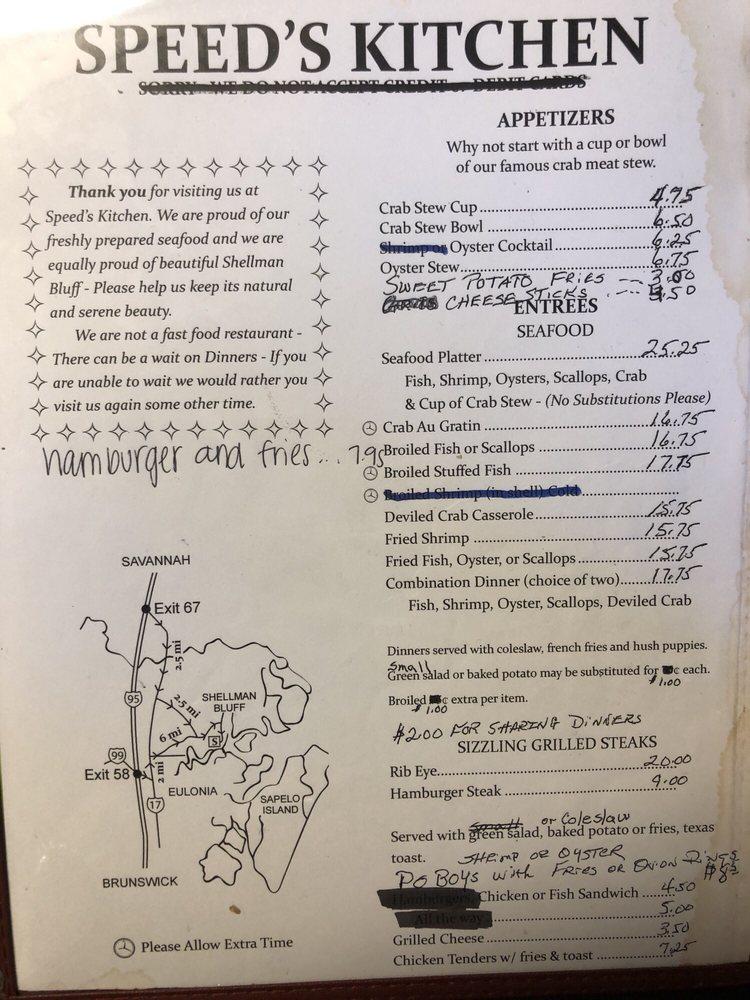 SPEED'S KITCHEN
SORRY - WE DO NOT ACCEPT CREDIT or DEBIT CARDS
Thank you for visiting us at
Speed's Kitchen. We are proud of our
freshly prepared seafood and we are
equally proud of beautiful Shellman
Bluff - Please help us keep its natural
and serene beauty.
We are not a fast food restaurant -
There can be a wait on Dinners - If you
are unable to wait we would rather you
visit us again some other time.
hamburger and fries... 7.95
SAVANNAH
Exit 67
2.5 mi
95
2.5 mi
SHELLMAN
BLUFF
6 mi
S
99
Exit 58
2 mi
17
EULONIA
SAPELO
ISLAND
BRUNSWICK
Please Allow Extra Time
APPETIZERS
Why not start with a cup or bowl
of our famous crab meat stew.
Crab Stew Cup 4.75
Crab Stew Bowl 6.50
Shrimp or Oyster Cocktail 6.25
Oyster Stew 6.75
SWEET POTATO FRIES --- 3.00
CHEESE STICKS ---- 5.50
ENTREES
SEAFOOD
Seafood Platter 25.25
Fish, Shrimp, Oysters, Scallops, Crab
& Cup of Crab Stew - (No Substitutions Please)
Crab Au Gratin 16.75
Broiled Fish or Scallops 16.75
Broiled Stuffed Fish 17.75
Broiled Shrimp (in shell) Cold
Deviled Crab Casserole 15.75
Fried Shrimp 15.75
Fried Fish, Oyster, or Scallops 15.75
Combination Dinner (choice of two) 17.75
Fish, Shrimp, Oyster, Scallops, Deviled Crab
Dinners served with coleslaw, french fries and hush puppies.
small
Green salad or baked potato may be substituted for ¢ each.
$1.00
Broiled ¢ extra per item.
$1.00
$2.00 FOR SHARING DINNERS
SIZZLING GRILLED STEAKS
Rib Eye 20.00
Hamburger Steak 9.00
small or Coleslaw
Served with green salad, baked potato or fries, texas
toast.
SHRIMP OR OYSTER
PO BOYS with FRIES OR ONION RINGS
Hamburgers, Chicken or Fish Sandwich 4.50
All the way 5.00
Grilled Cheese 3.50
Chicken Tenders w/ fries & toast 7.25